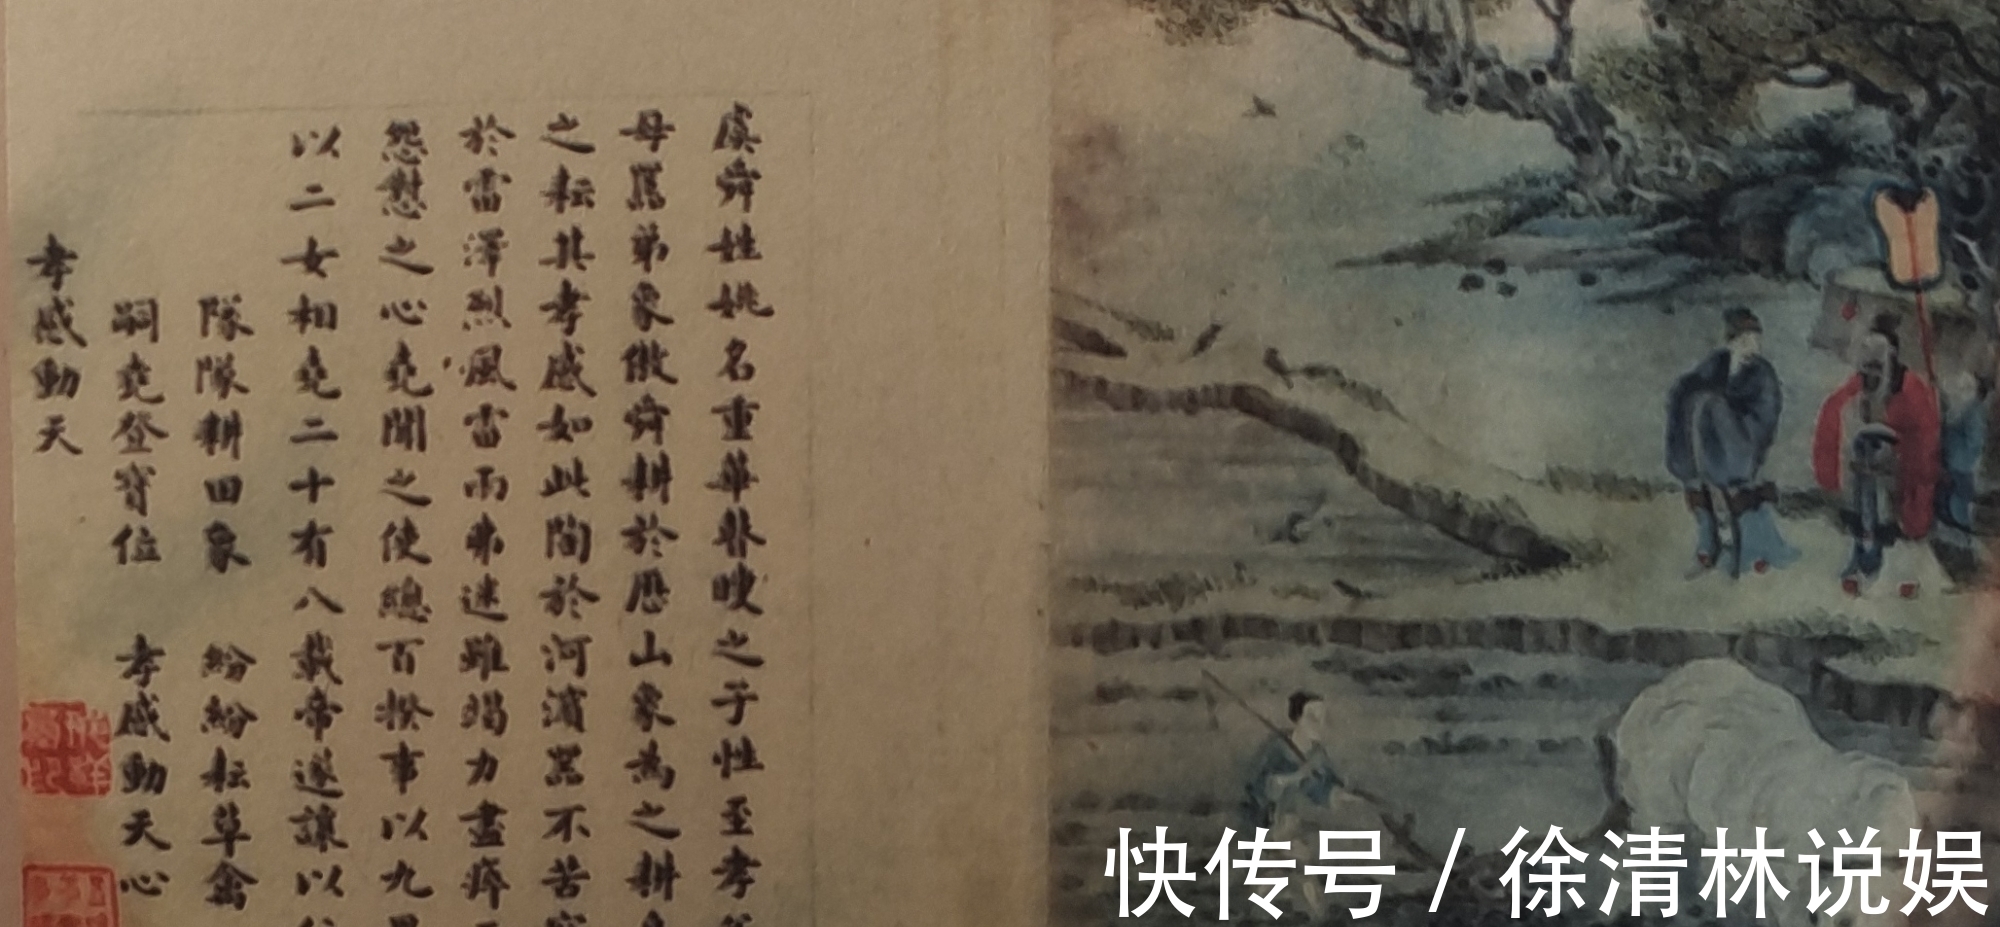 虞舜姓姚名重華瞽瞍之子性至孝
母嚚弟象傲舜耕於歷山象為之耕
之耘其孝感如此陶於河濱器不苦
於雷澤烈風雷雨弗迷雖竭力盡瘁
怨懟之心堯聞之使總百揆事以九
以二女相堯二十有八載帝遂讓以
隊隊耕田象 紛紛耘草禽
嗣堯登寶位 孝感動天心
孝感動天
快传号 / 徐清林说娱